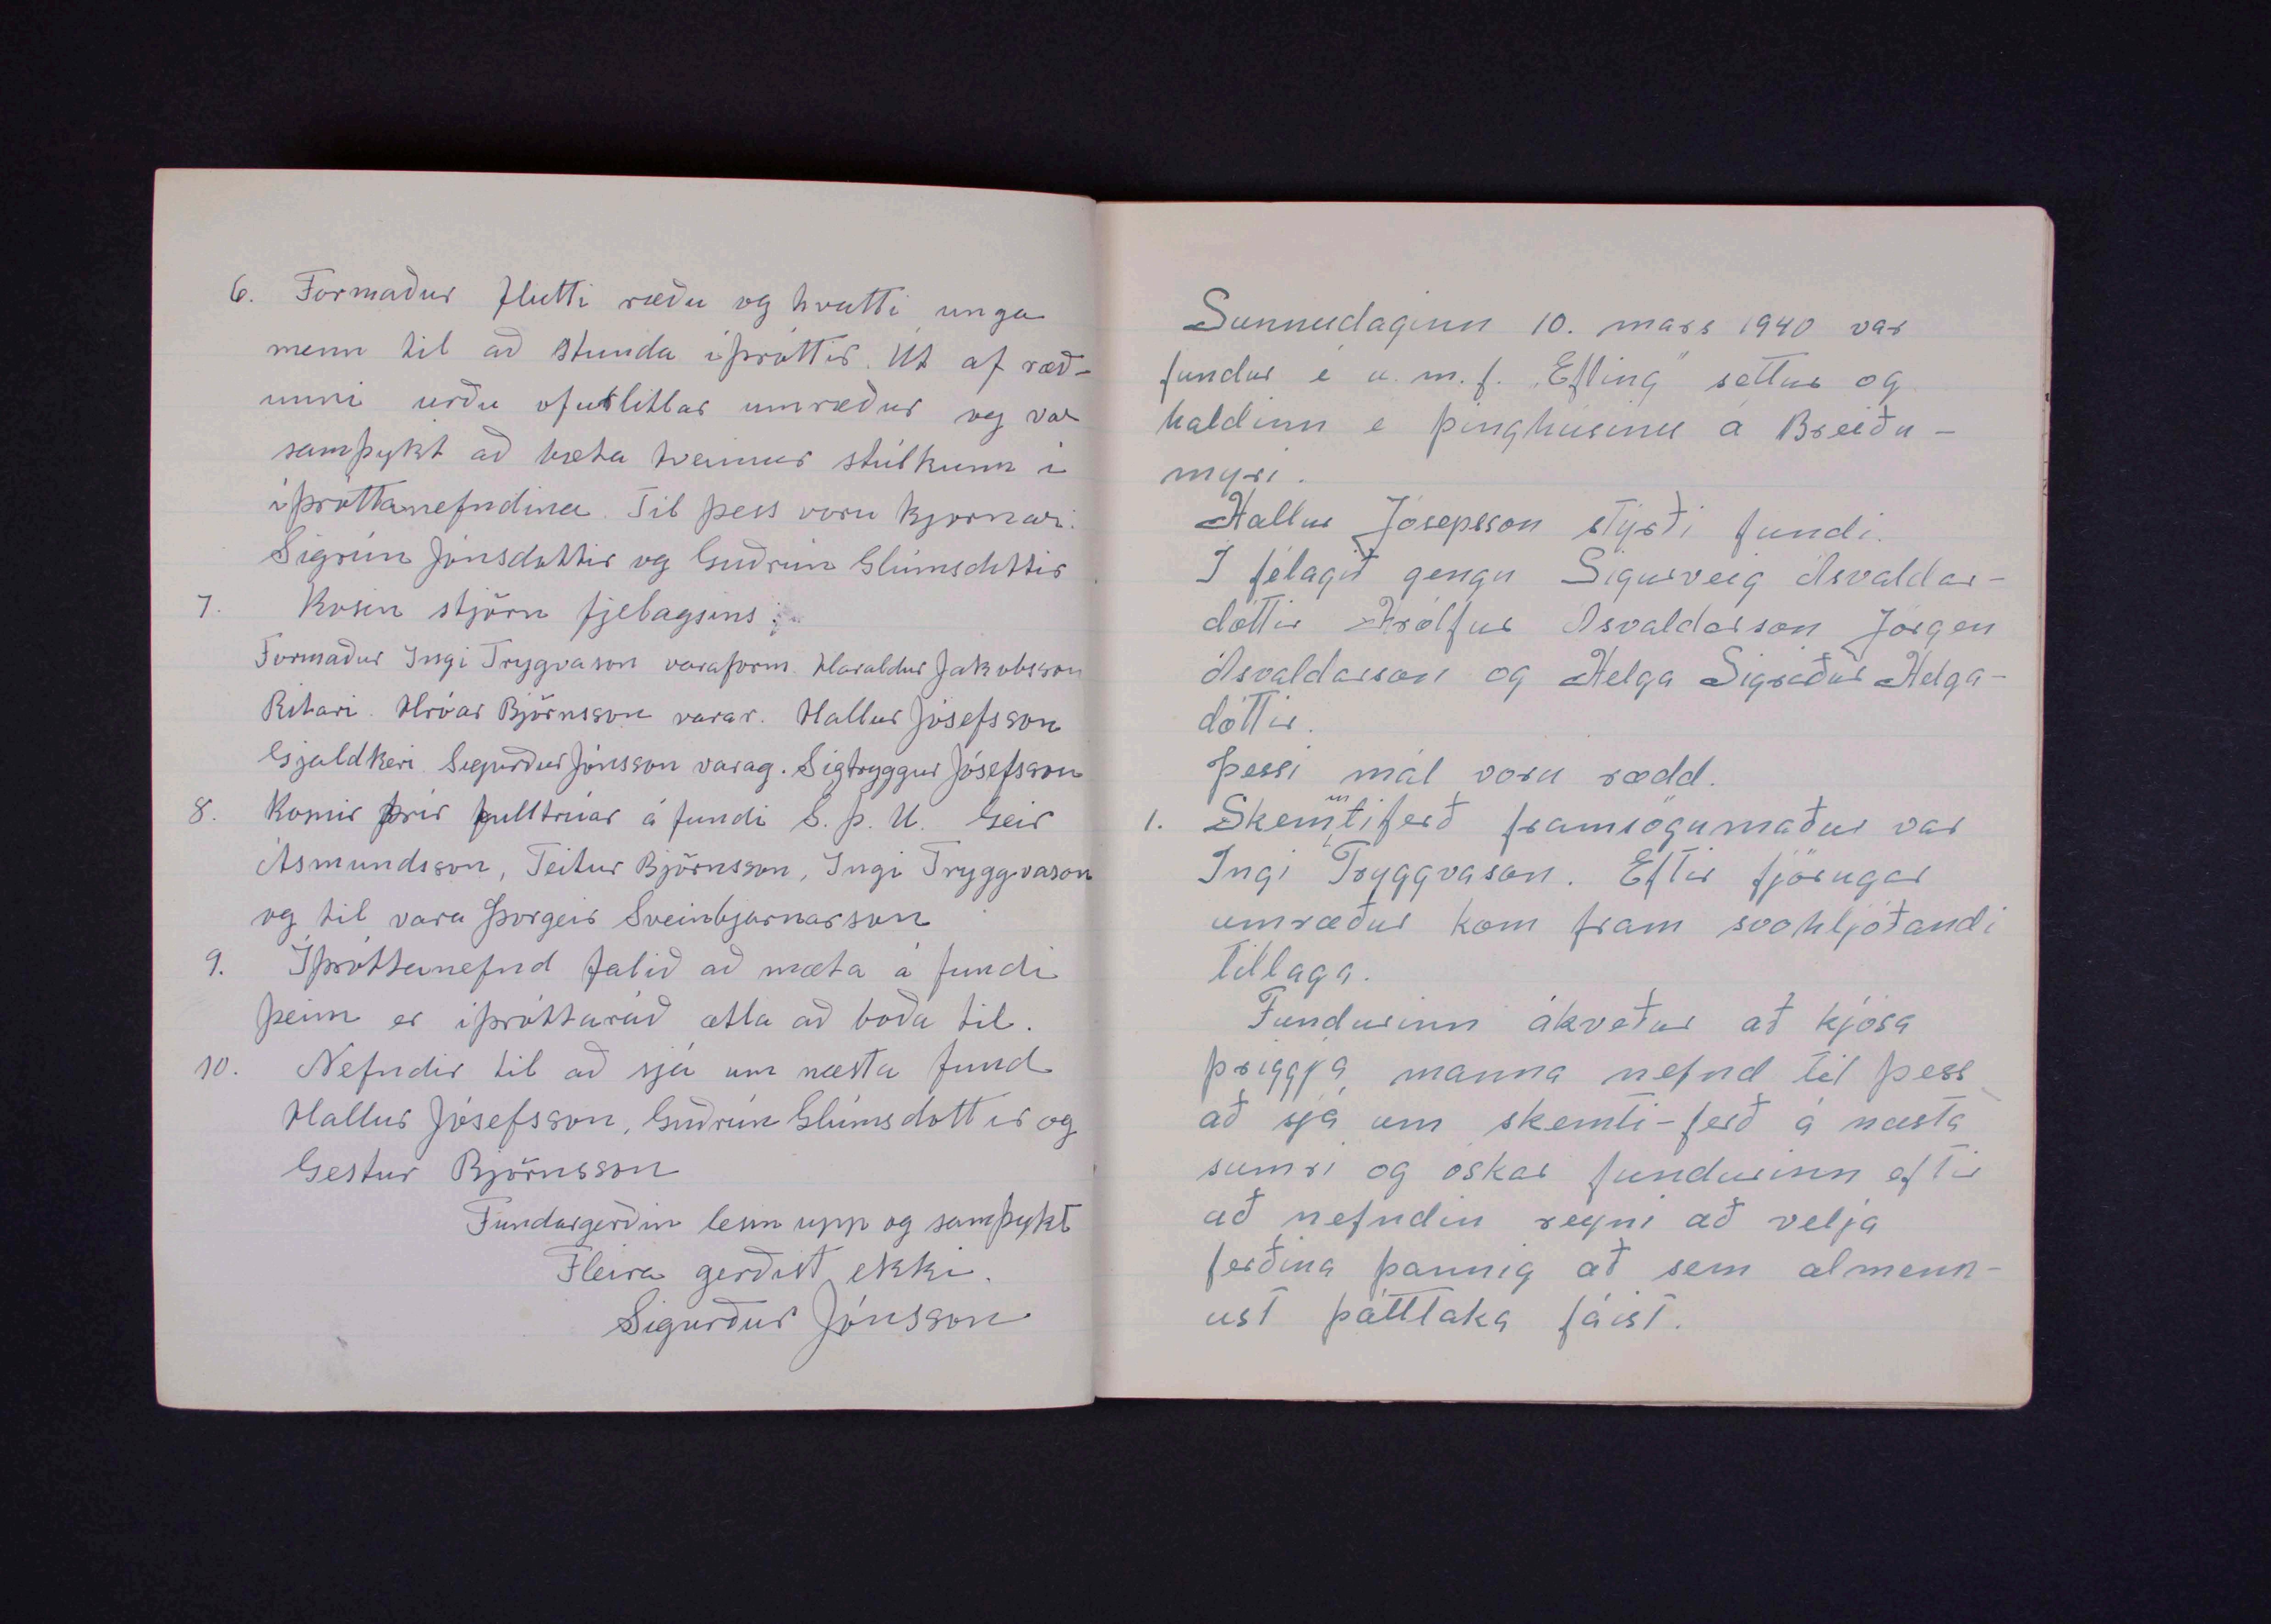 6. Formaður flutti ræðu og hvatti unga
menn til að stunda íþróttir. Út af ræð-
unni urðu ofurlitlar umræður og var
samþykt að bæta tveimur stúlkum í
íþróttanefndina. Til þess voru kjörnar:
Sigrún Jónsdóttir og Guðrún Glúmsdóttir
7. Kosin stjórn fjelagsins:
Formaður Ingi Trygvason varaform. Haraldur Jakobsson
Ritari. Hróar Björnsson varar. Hallur Jósefsson
Gjaldkeri Sigurður Jónsson varag. Sigtryggur Jósefsson
8. Kosnir þrír fulltrúar á fundi S.Þ.U. Geir
Ásmundsson, Teitur Björnsson, Ingi Tryggvason
og til vara Þorgeir Sveinbjarnarson
9. Íþróttanefnd falið að mæta á fundi
þeim er íþróttaráð ætla að boða til.
10. Nefndir til að sjá um næsta fund
Hallur Jósefsson, Guðrún Glúmsdóttir og
Gestur Björnsson
Fundargerðin lesin upp og samþykt
Fleira gerðist ekki.
Sigurður Jónsson
Sunnudaginn 10. mars 1940 var
fundur í u.m.f. „Efling" settur og
haldinn í þinghúsinu á Breiðu-
mýri.
Hallur Jósepsson stýrði fundi.
Í félagið gengu Sigurveig Ásvaldar-
dóttir Hrólfur Ásvaldarson Jörgen
Ásvaldarson og Helga Sigríður Helga-
dóttir.
Þessi mál voru rædd.
1. Skemmtiferð framsögumaður var
Ingi Tryggvason. Eftir fjörugar
umræður kom fram svohljóðandi
tillaga.
Fundurinn ákveður að kjósa
þriggja manna nefnd til þess
að sjá um skemti-ferð á næsta
sumri og óskar fundurinn eftir
að nefndin reyni að velja
ferðina þannig að sem almenn-
ust þátttaka fáist.